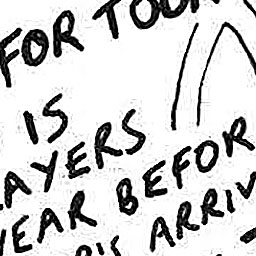 FOR TOO
IS
AYERS
YEAR BEFOR
R'S ARRIV